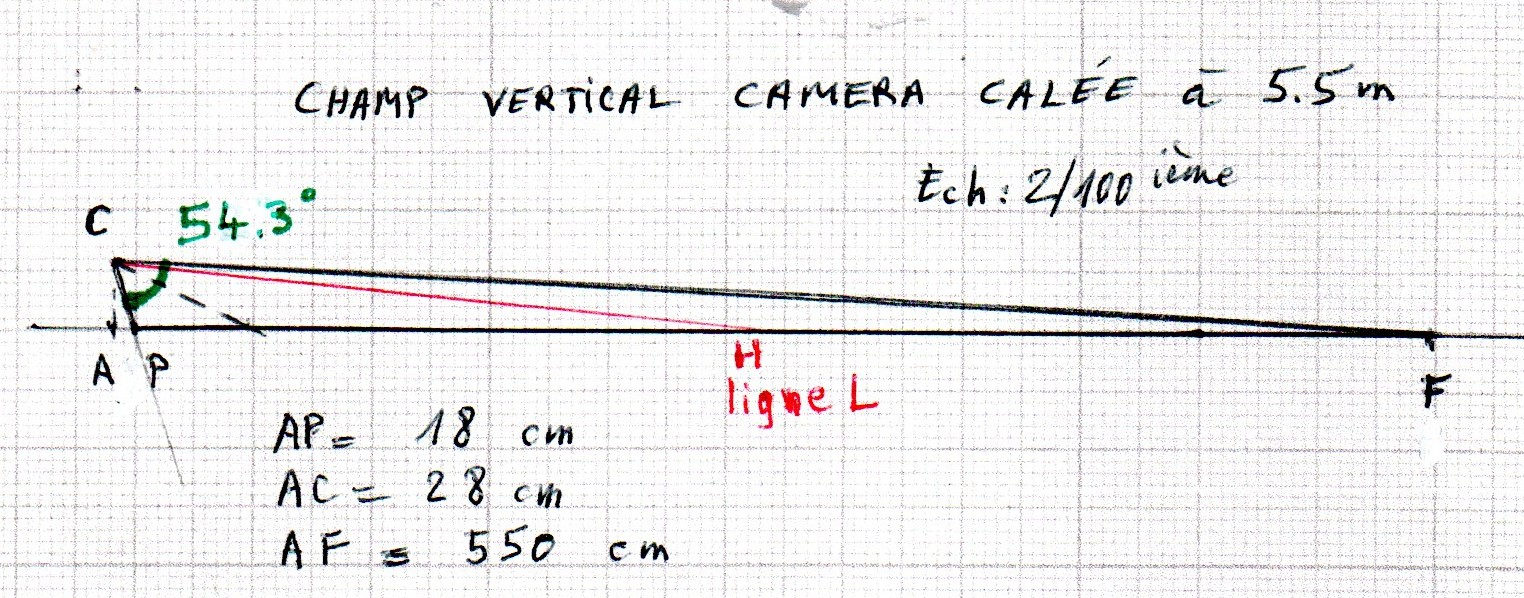 CHAMP VERTICAL CAMERA CALÉE à 5.5m
Ech: 2/100 ième
C 54.3°
A P
H
ligne L
F
AP= 18 cm
AC= 28 cm
AF= 550 cm